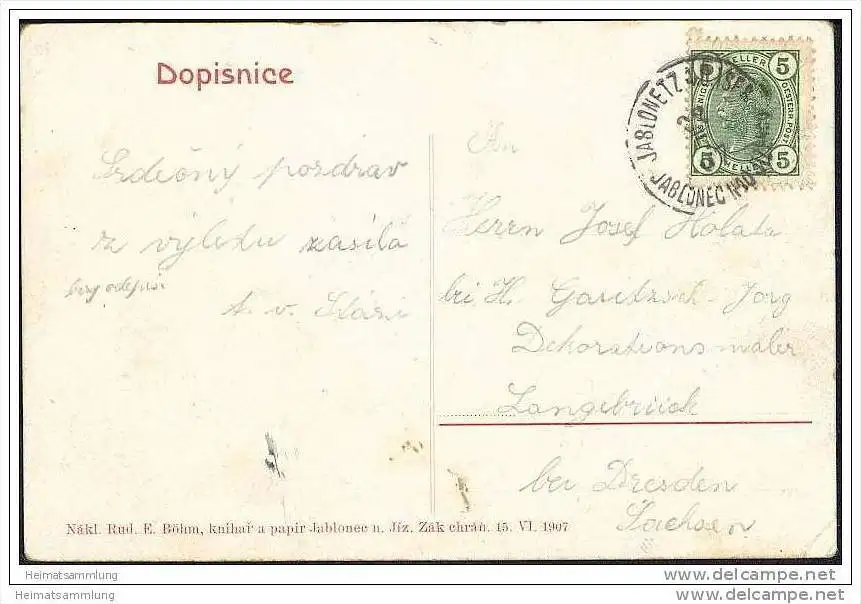 Dopisnice
5 HELLER 5
OESTERR. POST
5 HELLER 5
JABLONETZ
JABLONEC
Srdečný pozdrav
z výletu zasílá
t. v. Stázi
An
Herrn Josef Holata
bei H. Garitzsch-Jorg
Dekorationsmaler
Langebrück
bei Dresden
Sachsen
Nákl. Rud. E. Böhm, knihař a papír Jablonec n. Jiz. Zák chrán. 15. VI. 1907
Heimatsammlung
Heimatsammlung
www.delcampe.net
www.delcampe.net